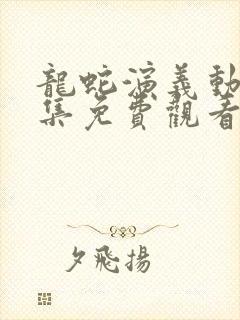 龍蛇演義動
集免費觀看
夕飛揚